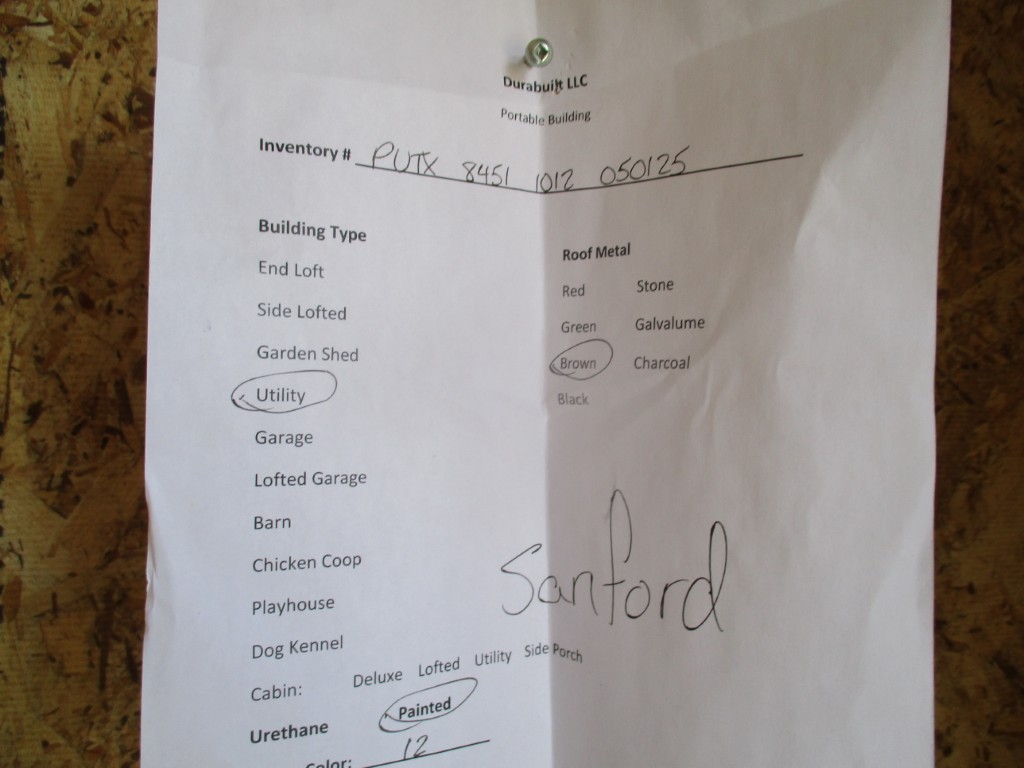 Durabuilt LLC
Portable Building
Inventory # PUTX 8451 1012 050125
Building Type
End Loft
Side Lofted
Garden Shed
Utility
Garage
Lofted Garage
Barn
Chicken Coop
Playhouse
Dog Kennel
Cabin: Deluxe Lofted Utility Side Porch
Urethane Painted
Color: 12
Roof Metal
Red Stone
Green Galvalume
Brown Charcoal
Black
Sanford